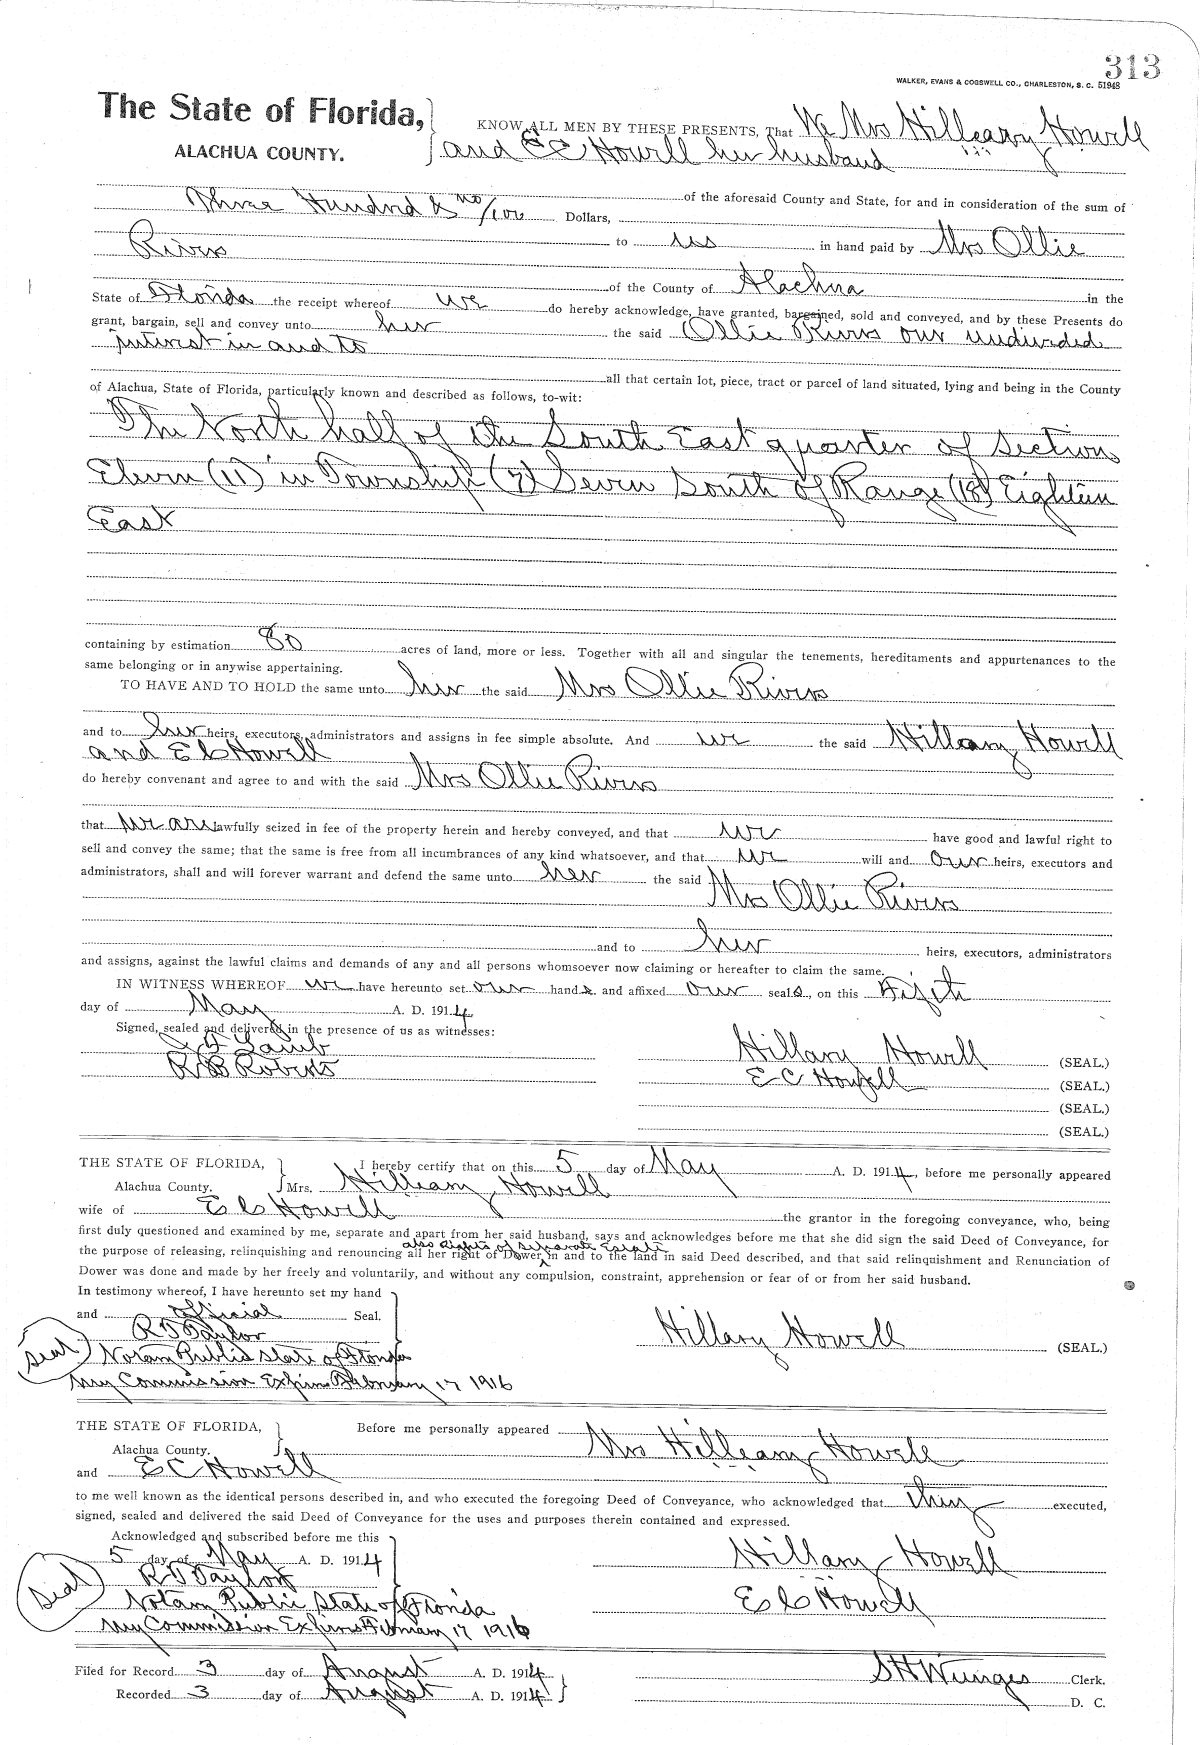 313
WALKER, EVANS & COGSWELL CO., CHARLESTON, S. C. 51948
The State of Florida,
ALACHUA COUNTY.
KNOW ALL MEN BY THESE PRESENTS, That We Mrs Hilleary Howell
and E C Howell her husband
of the aforesaid County and State, for and in consideration of the sum of
Three Hundred & no/100 Dollars,
to us in hand paid by Mrs Ollie
Rivers
of the County of Alachua in the
State of Florida the receipt whereof we do hereby acknowledge, have granted, bargained, sold and conveyed, and by these Presents do
grant, bargain, sell and convey unto her the said Ollie Rivers our undivided
interest in and to
all that certain lot, piece, tract or parcel of land situated, lying and being in the County
of Alachua, State of Florida, particularly known and described as follows, to-wit:
The North half of the South East quarter of Section
Eleven (11) in Township (7) Seven South of Range (18) Eighteen
East
containing by estimation 80 acres of land, more or less. Together with all and singular the tenements, hereditaments and appurtenances to the
same belonging or in anywise appertaining.
TO HAVE AND TO HOLD the same unto her the said Mrs Ollie Rivers
and to her heirs, executors, administrators and assigns in fee simple absolute. And we the said Hilleary Howell
and E C Howell
do hereby convenant and agree to and with the said Mrs Ollie Rivers
that we are lawfully seized in fee of the property herein and hereby conveyed, and that we have good and lawful right to
sell and convey the same; that the same is free from all incumbrances of any kind whatsoever, and that we will and our heirs, executors and
administrators, shall and will forever warrant and defend the same unto her the said Mrs Ollie Rivers
and to her heirs, executors, administrators
and assigns, against the lawful claims and demands of any and all persons whomsoever now claiming or hereafter to claim the same.
IN WITNESS WHEREOF we have hereunto set our hands and affixed our seals, on this Fifth
day of May A. D. 1914
Signed, sealed and delivered in the presence of us as witnesses:
F Lamb
R B Roberts
Hillary Howell (SEAL.)
E C Howell (SEAL.)
(SEAL.)
(SEAL.)
THE STATE OF FLORIDA,
Alachua County.
I hereby certify that on this 5 day of May A. D. 1914, before me personally appeared
Mrs. Hilleary Howell
wife of E C Howell the grantor in the foregoing conveyance, who, being
first duly questioned and examined by me, separate and apart from her said husband, says and acknowledges before me that she did sign the said Deed of Conveyance, for
also Rights of Separate Estate
the purpose of releasing, relinquishing and renouncing all her right of Dower, in and to the land in said Deed described, and that said relinquishment and Renunciation of
Dower was done and made by her freely and voluntarily, and without any compulsion, constraint, apprehension or fear of or from her said husband.
In testimony whereof, I have hereunto set my hand
and official Seal.
R D Taylor
Seal
Notary Public State of Florida
My Commission Expires February 17 1916
Hillary Howell (SEAL.)
THE STATE OF FLORIDA,
Alachua County.
Before me personally appeared Mrs Hilleary Howell
and E C Howell
to me well known as the identical persons described in, and who executed the foregoing Deed of Conveyance, who acknowledged that they executed,
signed, sealed and delivered the said Deed of Conveyance for the uses and purposes therein contained and expressed.
Acknowledged and subscribed before me this
5 day of May A. D. 1914
R D Taylor
Seal
Notary Public State of Florida
My Commission Expires February 17 1916
Hillary Howell
E C Howell
Filed for Record 3 day of August A. D. 1914
Recorded 3 day of August A. D. 1914
S H Wienges Clerk.
D. C.